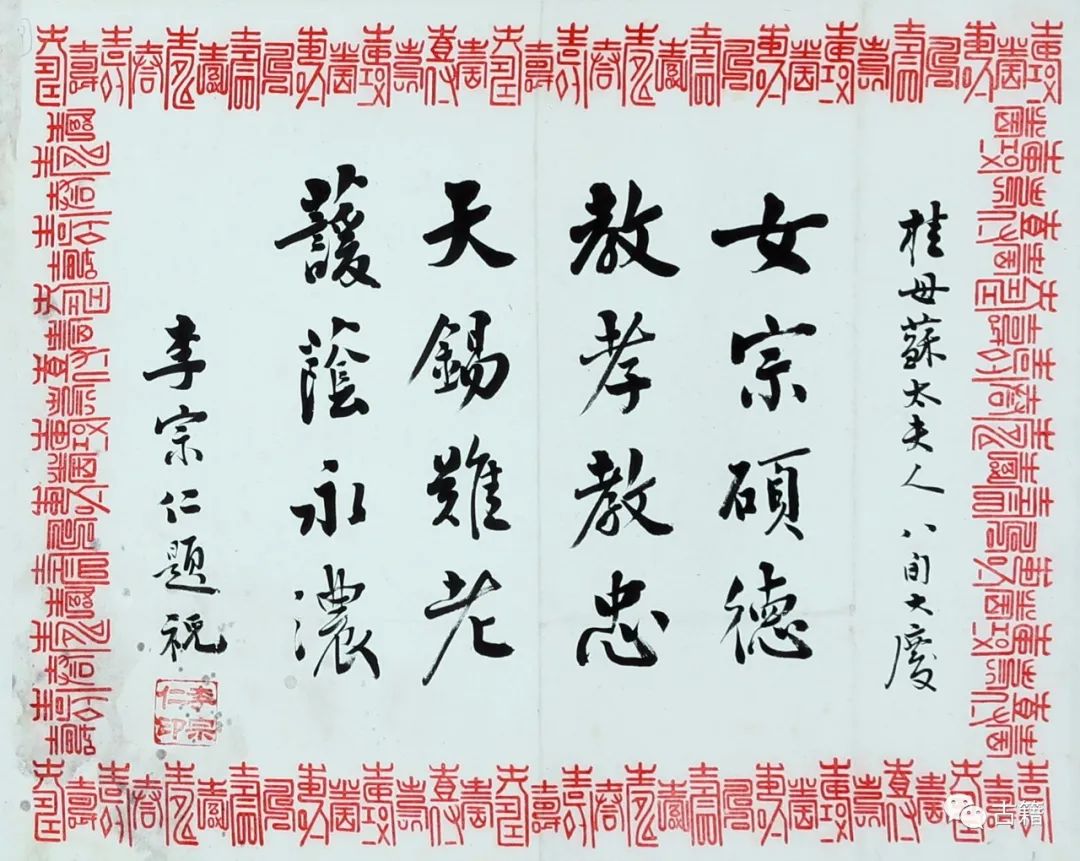 桂母蘇太夫人八旬大慶
女宗碩德
教孝教忠
天錫難老
蘐蔭永濃
李宗仁題祝
李宗仁印
古籍